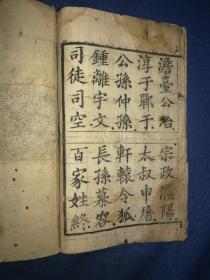 澹臺公冶 宗政 陽
淳于鄲于 太叔申屠
公孫仲孫 軒轅令狐
鍾離宇文 長孫慕容
司徒司空 百家姓終